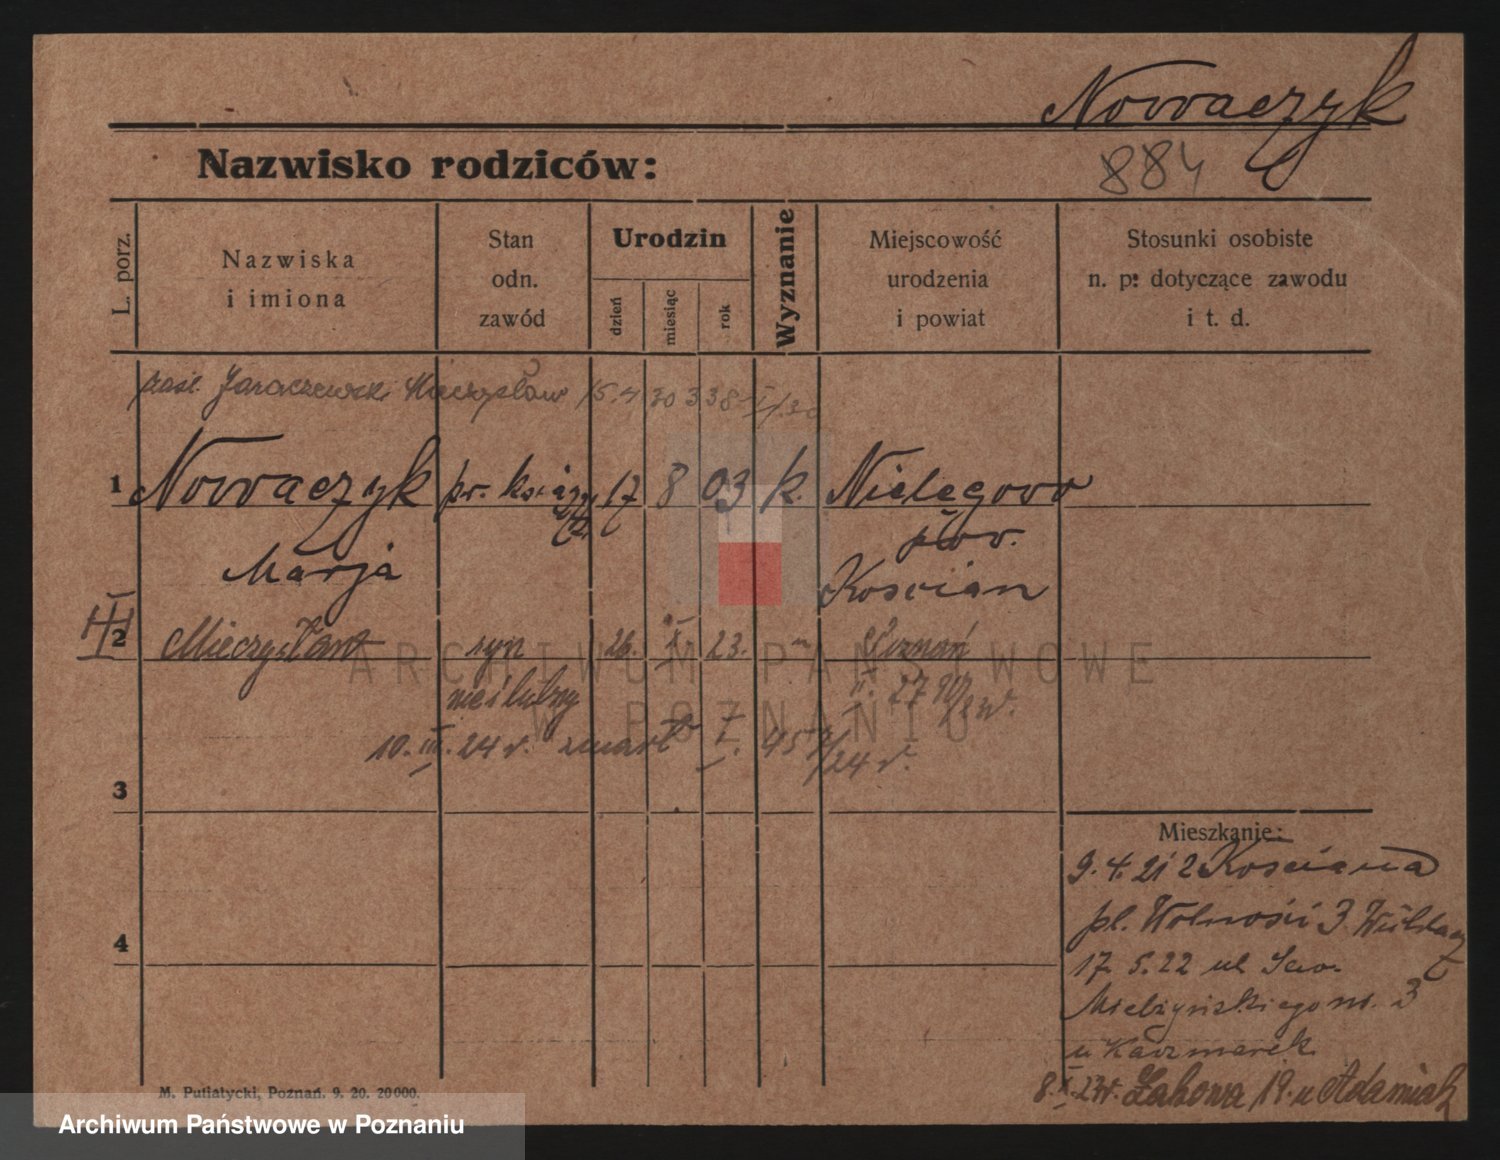 Nowaczyk
884
Nazwisko rodziców:
L. porz.
Nazwiska
i imiona
Stan
odn.
zawód
Urodzin
dzień
miesiąc
rok
Wyznanie
Miejscowość
urodzenia
i powiat
Stosunki osobiste
n. p. dotyczące zawodu
i t. d.
Jaraczewski Mieczysław 15.4
1 Nowaczyk pr. książ 17 8 03 k. Nielęgowo
pow.
Marja Kościan
2 Mieczysław syn 26. X. 23. Poznań
nieślubny
10. III. 24 r. zmarł I. 45 /24 r.
3
4
Mieszkanie:
9. 4. 21 z Kościana
pl. Wolności 3
17. 5. 22 ul. Sew.
Mielżyńskiego nr. 3
u Kaczmarek
8. X. 23 r. Łąkowa 19. u Adamiak
M. Putiatycki, Poznań. 9. 20. 20000.
ARCHIWUM PAŃSTWOWE
W POZNANIU
Archiwum Państwowe w Poznaniu